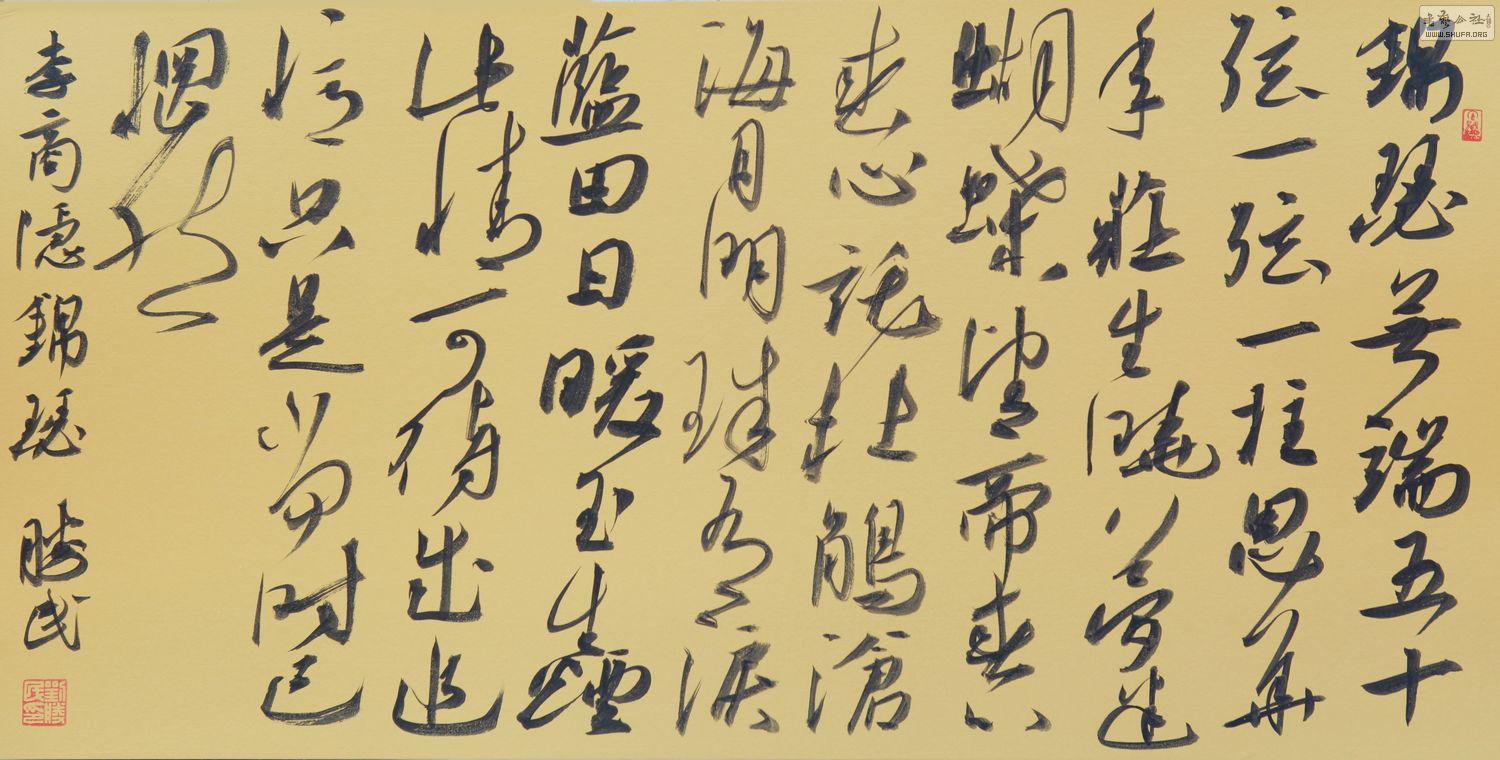 錦瑟無端五十
弦一弦一柱思華
年莊生曉夢迷
蝴蝶望帝春
春心託杜鵑滄
海月明珠有淚
藍田日暖玉生煙
此情可待成追
憶只是當時已
惘然
李商隱錦瑟 勝民
劉勝民印
書藝公社
WWW.SHUFA.ORG